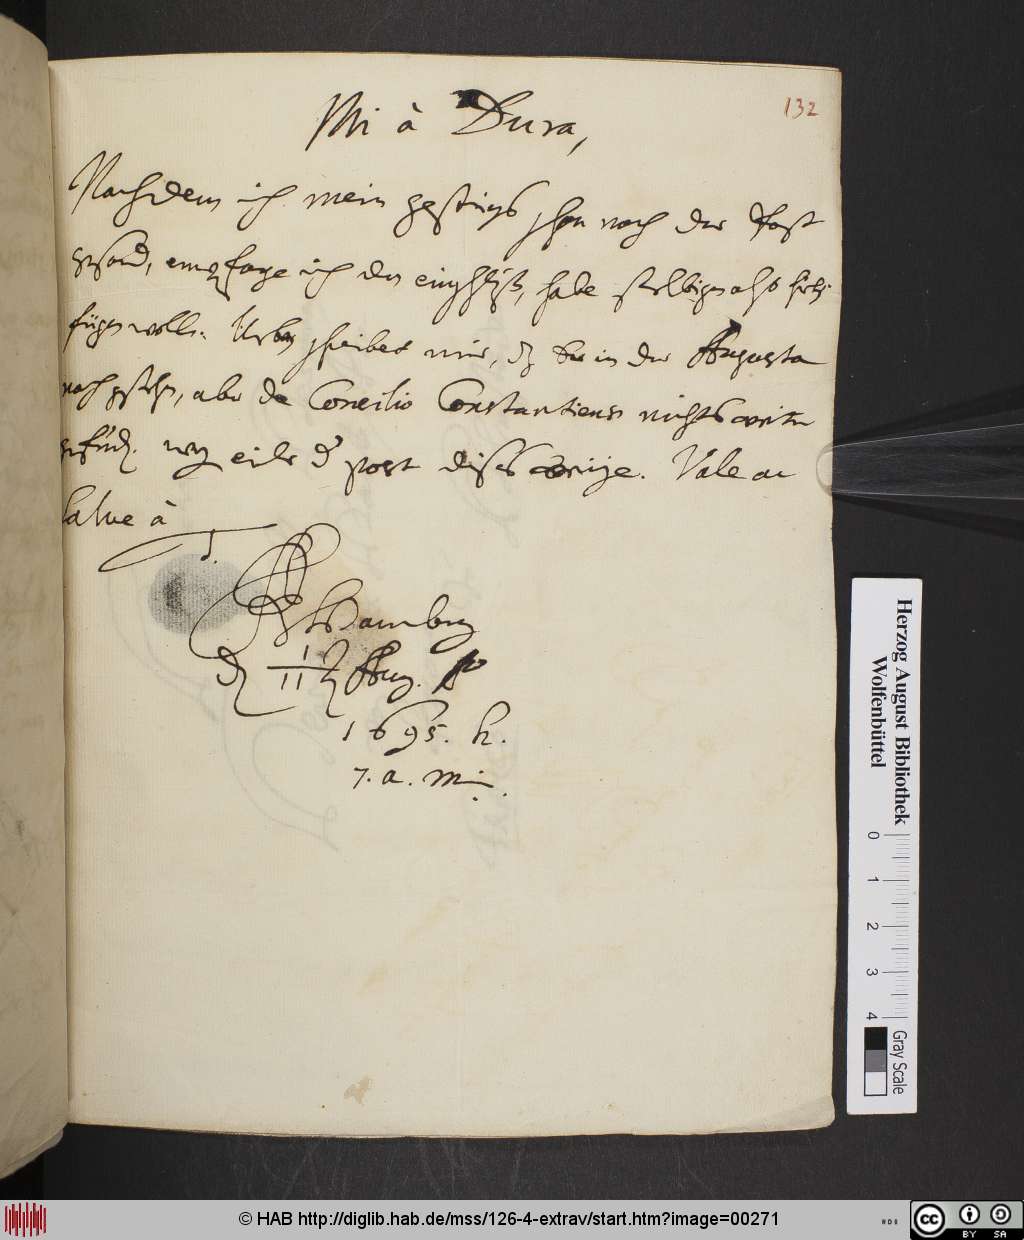 132
Mi à Dura,
Nachdem ich mein gestriges schon nach der Post
gesand, empfange ich den einschluß, habe selbigen also
fügen wollen. schreibet mir, dz Sie in der Augusta
nachgesehen, aber de Concilio Constantiensi nichts weiter
gefunden. wegen eile der post dieses wenige. Vale ac
salve à
T.
Hamburg
den 1/11 Aug. Ao
1695. h.
7. a. m.
Herzog August Bibliothek
Wolfenbüttel
0 1 2 3 4
Gray Scale
© HAB http://diglib.hab.de/mss/126-4-extrav/start.htm?image=00271
cc BY SA